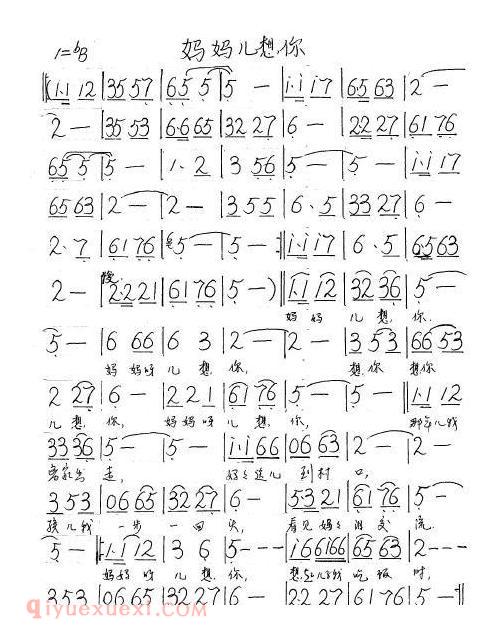 妈妈儿想你
1=♭B
‖(1·1 12|35 57|65 5|5 —|i·i i7|65 63|2 —|
2 —|35 53|6·6 65|32 27|6 —|2·2 27|61 76|
65 5|5 —|1· 2|3 56|5 —|5 —|i·i i7|
65 63|2 —|2 —|3 5 5|6 · 5|33 27|6 —|
2· 7|61 76|5 —|5 — :‖i·i i7|6 · 5|65 63|
2 —|2·2 21|61 76|5 —)‖1·1 12|32 36|5 —|
妈妈 儿想, 你.
5 —|6 66|6 3|2 —|2 —|3 5 3|66 53|
妈妈呀儿想, 你, 想你 想你
2 27|6 —|2 2 1|61 76|5 —|5 —‖1·1 12|
儿想, 你, 妈妈呀儿想, 你,
33 36|5 —|5 —|i·i 66|06 63|2 —|2 —|
离家出走, 到村口,
3 53|06 65|32 27|6 —|53 21|61 76|5 —|
孩儿我 一步一回头, 看见妈妈 泪交流
5 —‖:1·1 12|3 6|5 - - -|i 66 i66|65 63|2 - - -|
妈妈呀儿想, 你, 吃饭时,
3 53|06 65|36 32|i 76|6 —|2·2 27|61 76|5 — :‖
qiyuexuexi.com